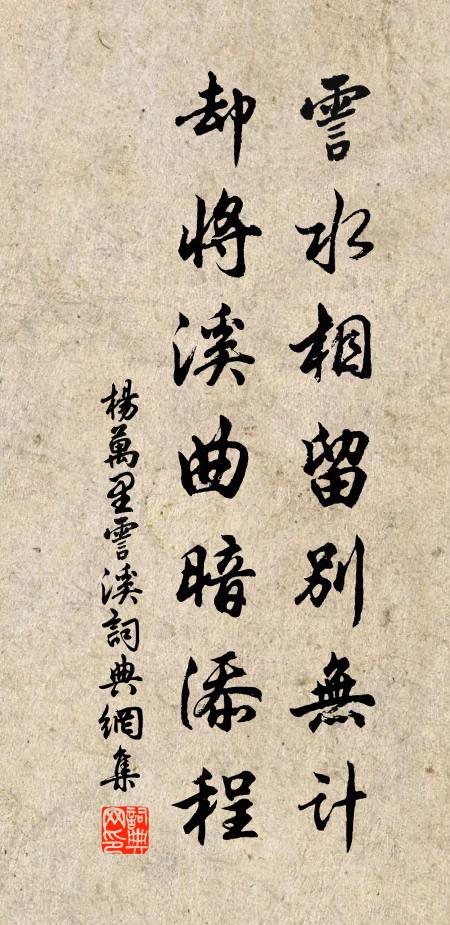 霅水相留别無计
却將溪曲暗添程
楊萬里霅溪詞典網集
詞典
网印